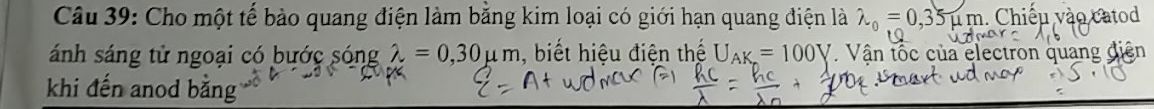 Câu 39: Cho một tế bào quang điện làm bằng kim loại có giới hạn quang điện là λ₀ = 0,35μm. Chiếu vào catod
ánh sáng tử ngoại có bước sóng λ = 0,30μm, biết hiệu điện thế U_AK = 100V. Vận tốc của electron quang điện
khi đến anod bằng
ε = A + wdmax (=) hc/λ = hc/λ₀ +